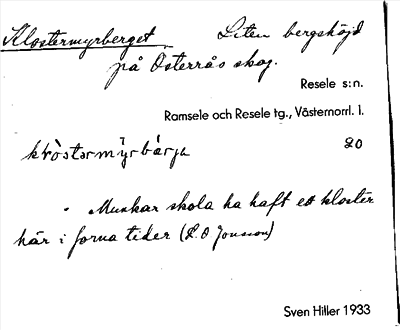 Klostermyrberget. Liten bergshöjd
på Österrås skog.
Resele s:n.
Ramsele och Resele tg., Västernorrl. l.
20
Munkar skola ha haft ett kloster
här i forna tider (L. O Jonsson)
Sven Hiller 1933